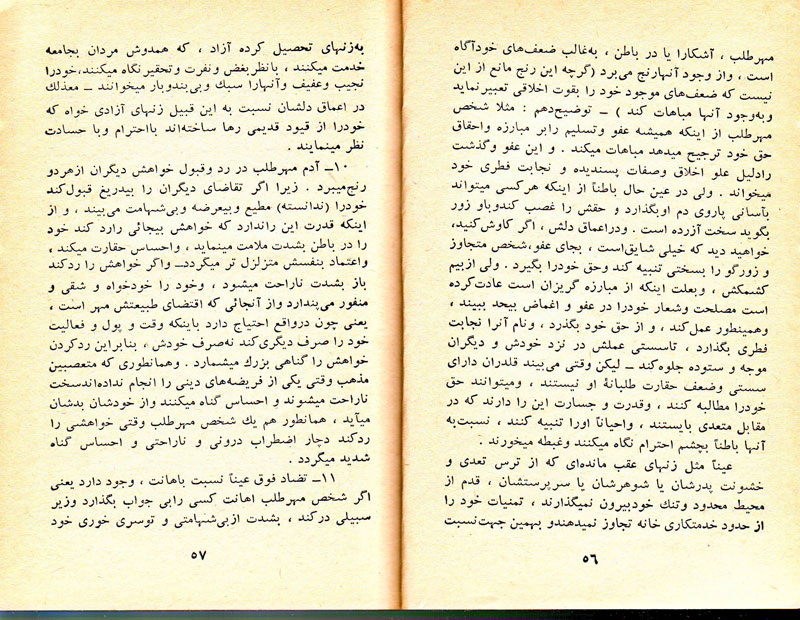 مهرطلب ، آشکارا یا در باطن ، به‌غالب ضعف‌های خودآگاه
است ، واز وجود آنهارنج می‌برد (گرچه این رنج مانع از این
نیست که ضعف‌های موجود خود را بقوت اخلاقی تعبیر نماید
وبه‌وجود آنها مباهات کند ) ــ توضیح‌دهم : مثلا شخص
مهرطلب از اینکه همیشه عفو وتسلیم رابر مبارزه واحقاق
حق خود ترجیح میدهد مباهات میکند . و این عفو وگذشت
رادلیل علو اخلاق وصفات پسندیده و نجابت فطری خود
میخواند . ولی در عین حال باطنآ از اینکه هرکسی میتواند
بآسانی پاروی دم اوبگذارد و حقش را غصب کندویاو زور
بگوید سخت آزرده است . ودراعماق دلش ، اگر کاوش‌کنید،
خواهید دید که خیلی شایق‌است ، بجای عفو،شخص متجاوز
و زورگو را بسختی تنبیه کند وحق خودرا بگیرد . ولی ازبیم
کشمکش ، وبعلت اینکه از مبارزه گریزان است عادت‌کرده
است مصلحت وشعار خودرا در عفو و اغماض بیحد ببیند ،
وهمینطور عمل‌کند ، و از حق خود بگذرد ، ونام آنرا نجابت
فطری بگذارد ، تاسستی عملش در نزد خودش و دیگران
موجه و ستوده جلوه‌کند ــ لیکن وقتی می‌بیند قلدران دارای
سستی وضعف حقارت طلبانهٔ او نیستند ، ومیتوانند حق
خودرا مطالبه کنند ، وقدرت و جسارت این را دارند که در
مقابل متعدی بایستند ، واحیاناً اورا تنبیه کنند ، نسبت‌به
آنها باطناً بچشم احترام نگاه میکنند وغبطه میخورند .
عیناً مثل زنهای عقب مانده‌ای که از ترس تعدی و
خشونت پدرشان یا شوهرشان یا سرپرستشان ، قدم از
محیط محدود وتنك خودبیرون نمیگذارند ، تمنیات خود را
از حدود خدمتکاری خانه تجاوز نمیدهندو بهمین جهت‌نسبت
۵۶
به‌زنهای تحصیل کرده آزاد ، که همدوش مردان بجامعه
خدمت میکنند ، بانظربغض ونفرت وتحقیرنگاه میکنند،خودرا
نجیب وعفیف وآنهارا سبك وبی‌بندوبار میخوانند ــ معذلك
در اعماق دلشان نسبت به این قبیل زنهای آزادی خواه که
خودرا از قیود قدیمی رها ساخته‌اند بااحترام وبا حسادت
نظر مینمایند .
۱۰ــ آدم مهرطلب در رد وقبول خواهش دیگران ازهردو
رنج‌میبرد . زیرا اگر تقاضای دیگران را بیدریغ قبول‌کند
خودرا (ندانسته) مطیع وبیعرضه وبی‌شهامت می‌بیند ، و از
اینکه قدرت این راندارد که خواهش بیجائی رارد کند خود
را در باطن بشدت ملامت مینماید ، واحساس حقارت میکند ،
واعتماد بنفسش متزلزل تر میگردد ــ واگر خواهش را ردکند
باز بشدت ناراحت میشود ، وخود را خودخواه و شقی و
منفور می‌پندارد واز آنجائی که اقتضای طبیعتش مهر است ،
یعنی چون درواقع احتیاج دارد باینکه وقت و پول و فعالیت
خود را صرف دیگری‌کند نه‌صرف خودش ، بنابراین ردکردن
خواهش را گناهی بزرك میشمارد . وهمانطوری که متعصبین
مذهب وقتی یکی از فریضه‌های دینی را انجام نداده‌اندسخت
ناراحت میشوند و احساس گناه میکنند واز خودشان بدشان
میآید ، همانطور هم یك شخص مهرطلب وقتی خواهشی را
ردکند دچار اضطراب درونی و ناراحتی و احساس گناه
شدید میگردد .
۱۱ــ تضاد فوق عیناً نسبت باهانت ، وجود دارد یعنی
اگر شخص مهرطلب اهانت کسی رابی جواب بگذارد وزیر
سبیلی درکند ، بشدت ازبی‌شهامتی و توسری خوری خود
۵۷